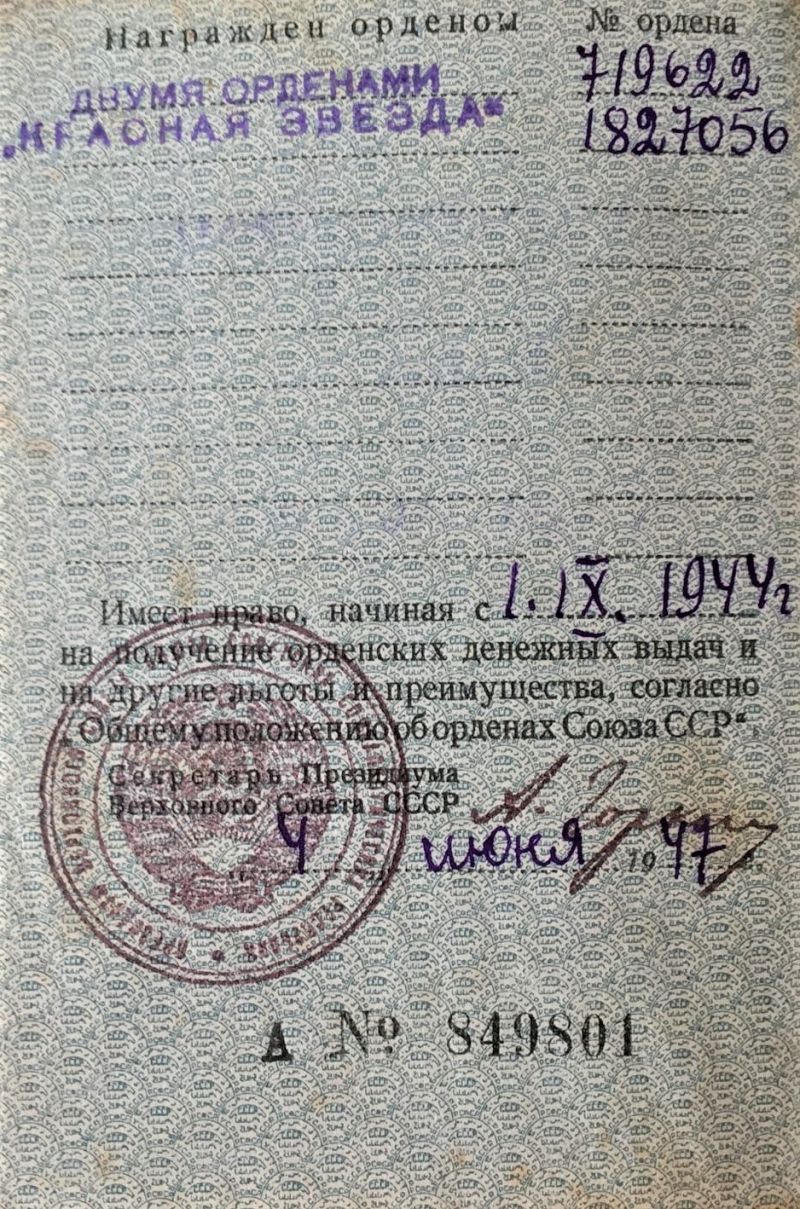 Награжден орденом № ордена
ДВУМЯ ОРДЕНАМИ 719622
„КРАСНАЯ ЗВЕЗДА“ 1827056
Имеет право, начиная с 1. IX. 1944г
на получение орденских денежных выдач и
на другие льготы и преимущества, согласно
„Общему положению об орденах Союза ССР“.
Секретарь Президиума
Верховного Совета СССР
4 июня 1947 г.
А № 849801